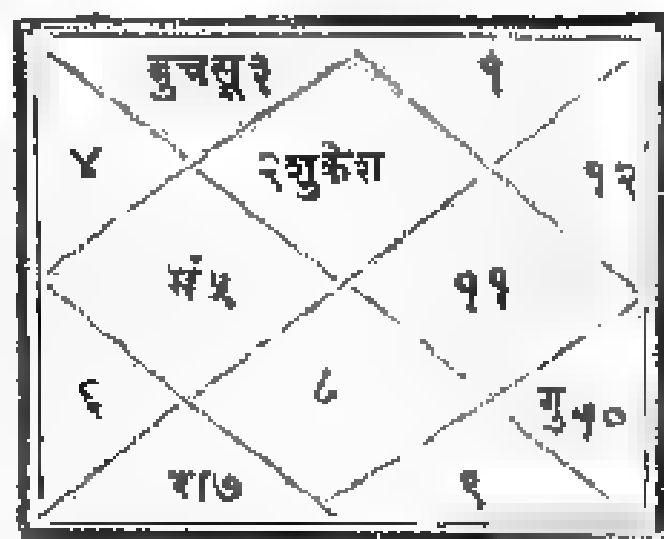 बुचसू३ १
४ २शुकेश १२
मं५ ११
६ ८ गु१०
रा७ ९